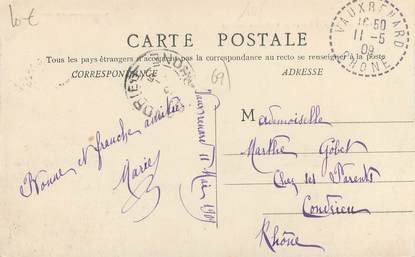 lot
CARTE POSTALE
Tous les pays étrangers n'acceptant pas la correspondance au recto se renseigner à la poste
CORRESPONDANCE
ADRESSE
69
VAUXRENARD
16 50
11 - 5
09
RHONE
Bonne et franche amitié
Marie
Vauxrenard 11 Mai 1909
Mademoiselle
Marthe Gobet
Chez ses Parents
Condrieu
Rhône